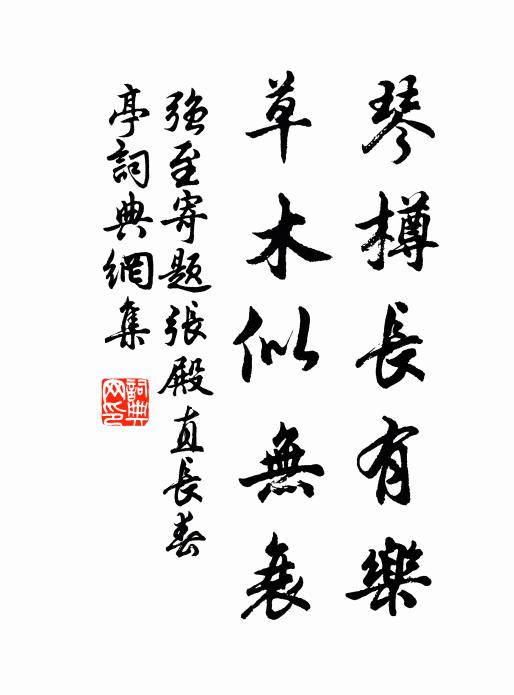 琴樽長有樂
草木似無衰
強至寄题張殿直長春
亭詞典網集
詞典
网印